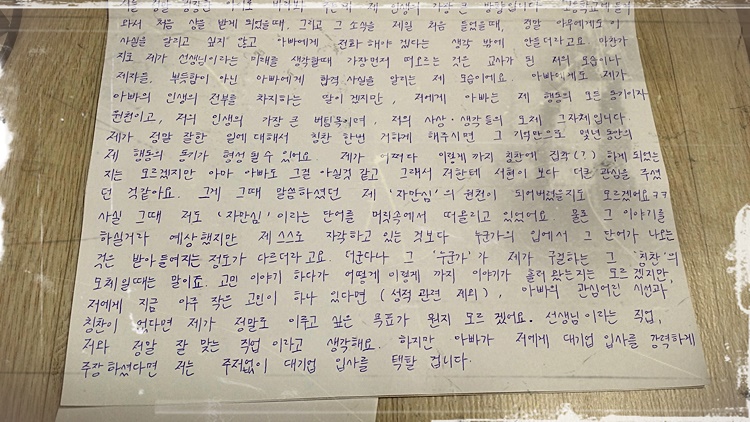 와서 처음 상을 받게 되었을때, 그리고 그 소식을 제일 처음 들었을때, 정말 아무에게도 이
사실을 알리고 싶지 않고 아빠에게 전화해야 겠다는 생각 밖에 안들더라고요. 마찬가
지로 제가 선생님이라는 미래를 생각할때 가장 먼저 떠오르는 것은 교사가 된 저의 모습이나
제자들, 뿌듯함이 아닌 아빠에게 합격 사실을 알리는 제 모습이에요. 아빠에게도 제가
아빠의 인생의 전부를 차지하는 딸이겠지만, 저에게 아빠는 제 행동의 모든 동기이자
원천이고, 저의 인생의 가장 큰 버팀목이며, 저의 사상·생각들의 모체 그자체입니다.
제가 정말 잘한 일에 대해서 칭찬 한번 거하게 해주시면 그 기억만으로 몇년 동안의
제 행동의 동기가 형성될 수 있어요. 제가 어쩌다 이렇게 까지 칭찬에 집착(?) 하게 되었는
지는 모르겠지만 아마 아빠도 그걸 아실것 같고 그래서 저한테 서현이 보다 더큰 관심을 주셨
던 것같아요. 그게 그때 말씀하셨던 제 '자만심'의 원천이 되어버렸을지도 모르겠어요ㅋㅋ
사실 그때 저도 '자만심' 이라는 단어를 머릿속에서 떠올리고 있었어요. 물론 그 이야기를
하실거라 예상했지만 제 스스로 자각하고 있는 것보다 누군가의 입에서 그 단어가 나오는
것은 받아들여지는 정도가 다르더라고요. 더군다나 그 '누군가'가 제가 구걸하는 그 '칭찬'의
모체일때는 말이죠. 고민 이야기 하다가 어떻게 이렇게 까지 이야기가 흘러 왔는지는 모르겠지만,
저에게 지금 아주 작은 고민이 하나 있다면 (성적 관련 제외), 아빠의 관심어린 시선과
칭찬이 없다면 제가 정말로 이루고 싶은 목표가 뭔지 모르겠어요. 선생님이라는 직업,
저와 정말 잘 맞는 직업이라고 생각해요. 하지만 아빠가 저에게 대기업 입사를 강력하게
주장하셨다면 저는 주저없이 대기업 입사를 택할 겁니다.